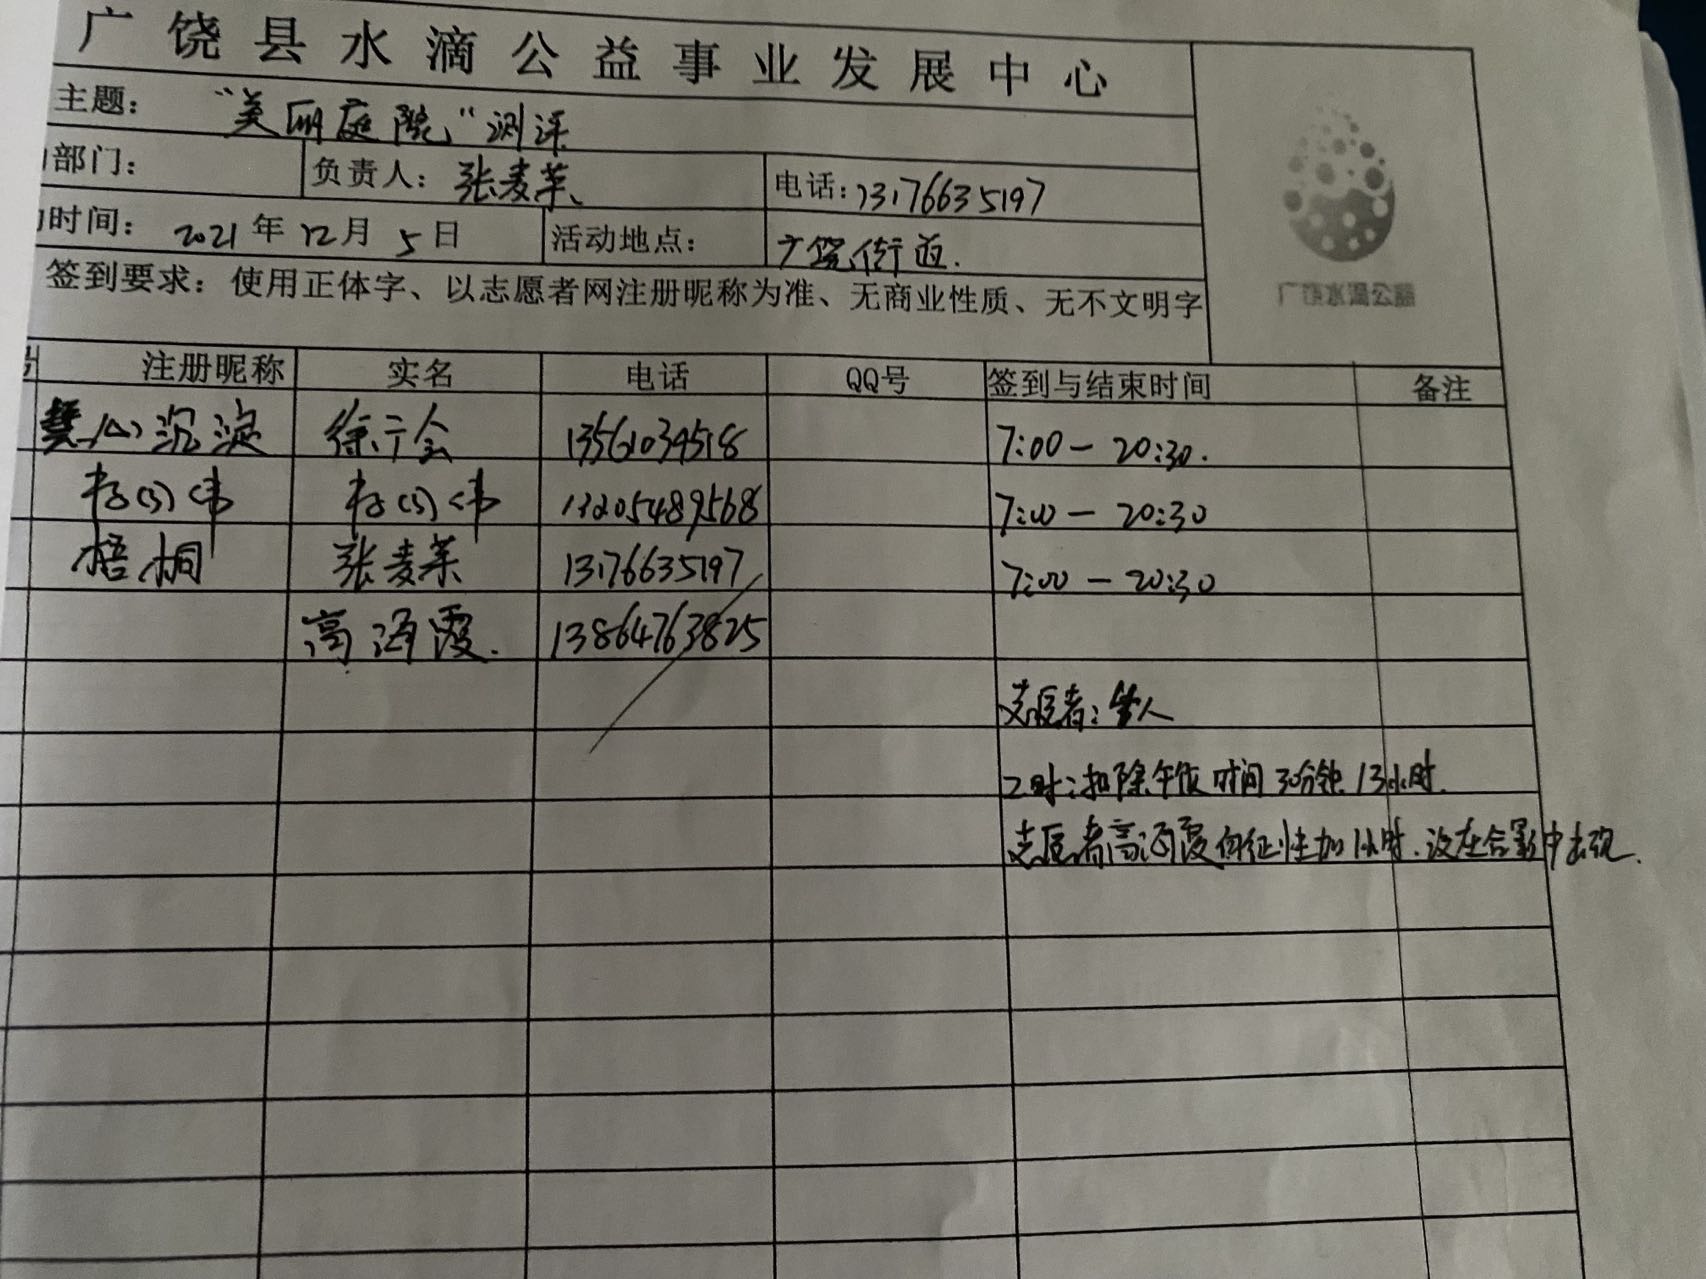 广饶县水滴公益事业发展中心
主题： "美丽庭院"测评
部门： 负责人：张麦荣 电话：13176635197
时间： 2021年12月5日 活动地点： 广饶街道.
签到要求：使用正体字、以志愿者网注册昵称为准、无商业性质、无不文明字
广饶水滴公益
号 注册昵称 实名 电话 QQ号 签到与结束时间 备注
沉淀 徐广会 13561034518 7:00－20:30.
13205489568 7:00－20:30
梧桐 张麦荣 13176635197 7:00－20:30
高海霞. 13864763825
志愿者：4人
工时：扣除午饭时间30分钟 13小时.
志愿者高海霞象征性加1小时.没在合影中出现.